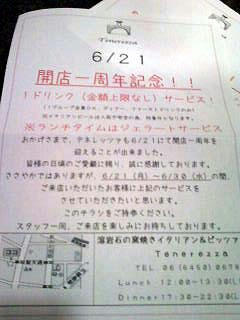 Tenerezza
6/21
開店一周年記念！！
1ドリンク（金額上限なし）サービス！
※ランチタイムはジェラートサービス
おかげさまで、テネレッツァも6/21にて開店一周年を
迎えることが出来ました。
皆様の日頃のご愛顧に頼り、誠に感謝しております。
ささやかではありますが、6/21（月）～6/30（水）の間、
ご来店いただいたお客様に上記のサービスを
させていただきたいと思います。
このチラシをご持参ください。
スタッフ一同、ご来店を楽しみにお待ちしております。
溶岩石の窯焼きイタリアン＆ピッツァ
Tenerezza
TEL.06(6450)
Lunch 12:00～13:
Dinner17:30～22:30(L